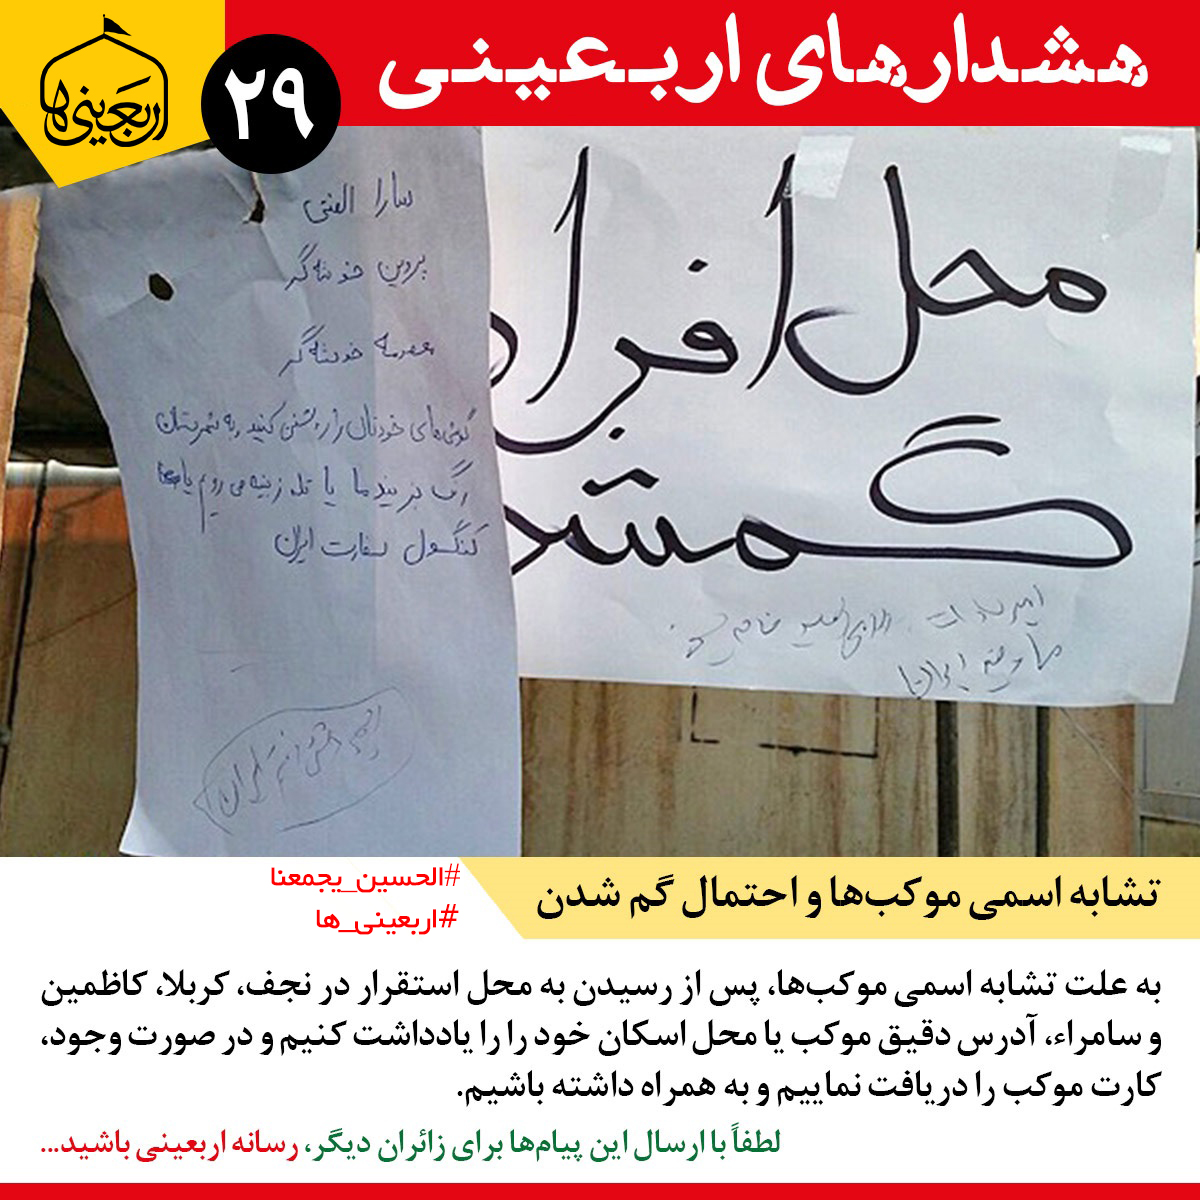 هشدارهای اربعینی
۲۹
اربعینی‌ها
محل افراد
گمشده
سارا الفتی
پروین خوشه گیر
معصومه خوشه گیر
گوشی های خودتان را روشن کنید به شهرستان
زنگ بزنید ما یا تله زینبیه می رویم یا
کنسول سفارت ایران
تشابه اسمی موکب‌ها و احتمال گم شدن
#الحسین_یجمعنا
#اربعینی_ها
به علت تشابه اسمی موکب‌ها، پس از رسیدن به محل استقرار در نجف، کربلا، کاظمین
و سامراء، آدرس دقیق موکب یا محل اسکان خود را را یادداشت کنیم و در صورت وجود،
کارت موکب را دریافت نماییم و به همراه داشته باشیم.
لطفاً با ارسال این پیام‌ها برای زائران دیگر، رسانه اربعینی باشید...